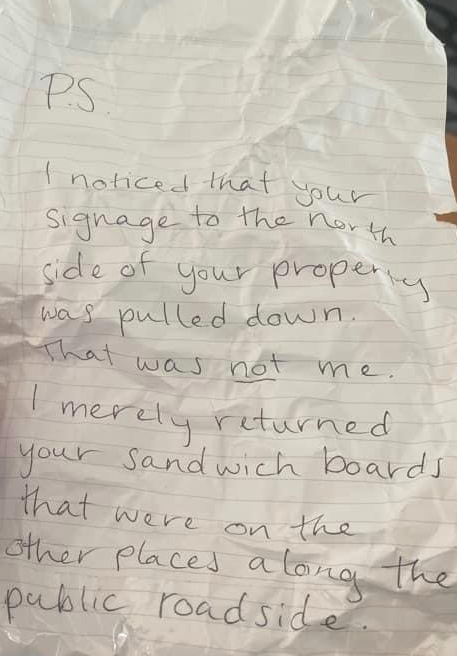 P.S.
I noticed that your
signage to the north
side of your property
was pulled down.
That was not me.
I merely returned
your sandwich boards
that were on the
other places along the
public roadside.